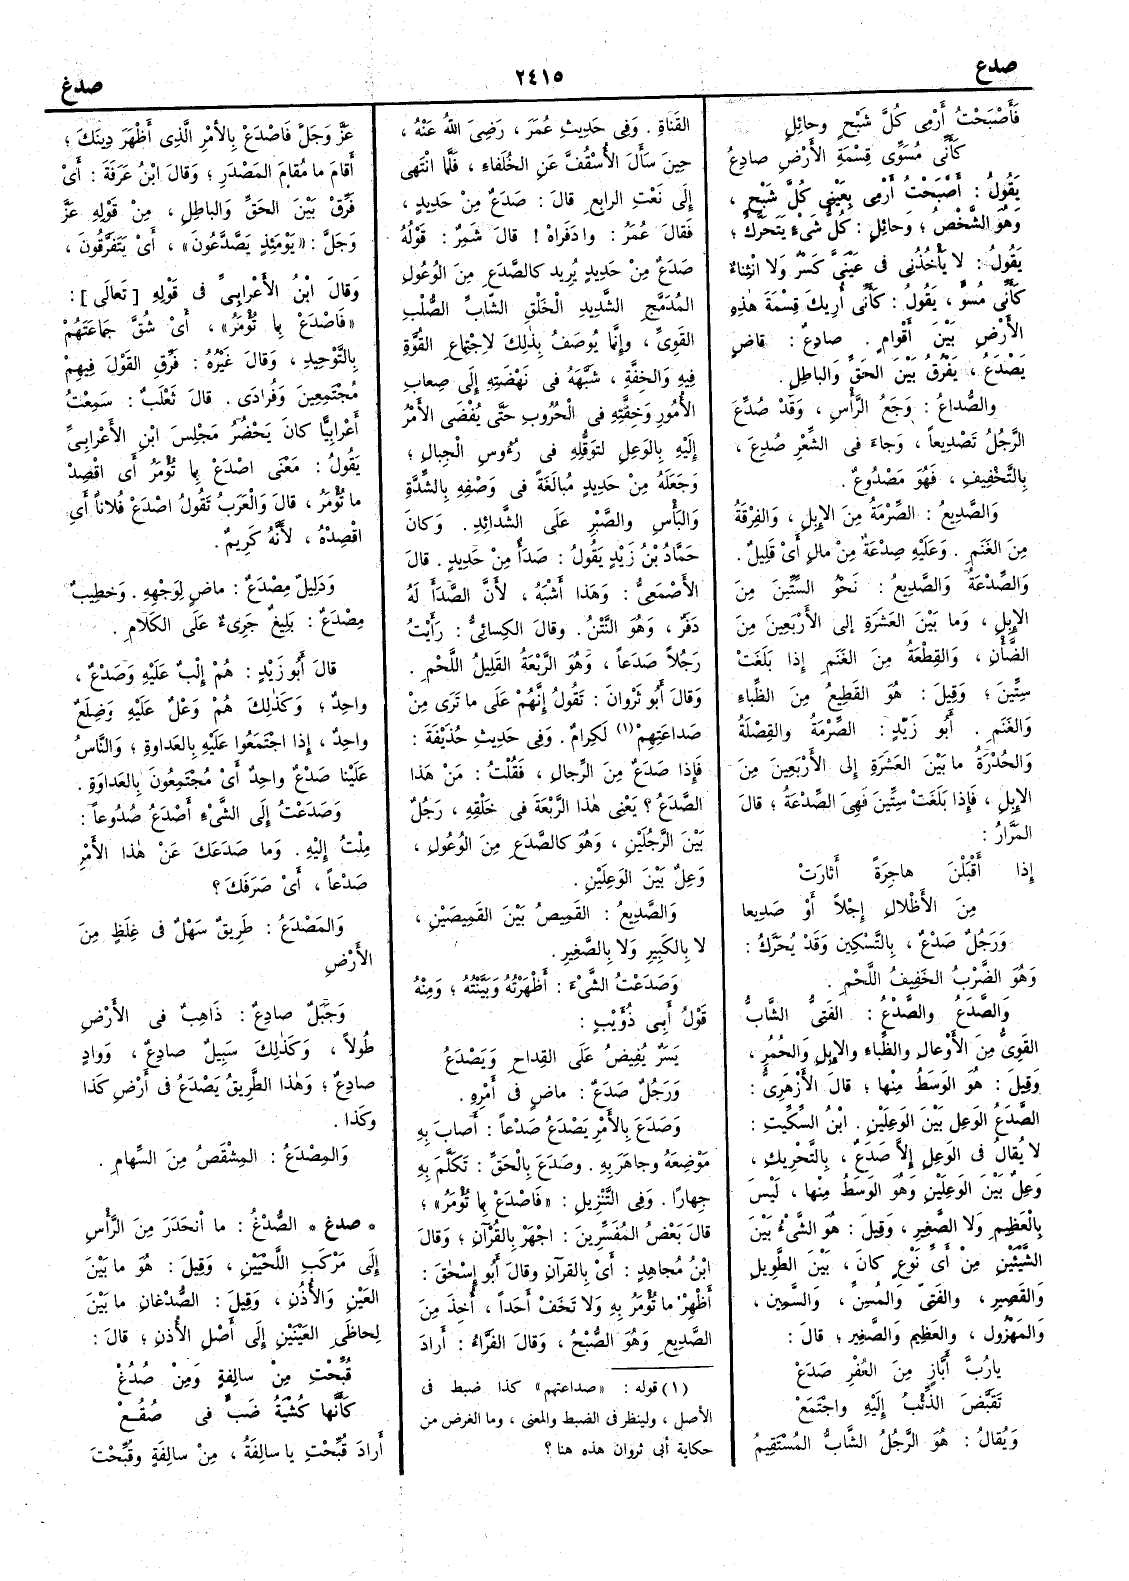 صدع
٢٤١٥
صدغ
فَأَصْبَحْتُ أَرْمِى كُلَّ شَبْحٍ وحائِلٍ
كَأَنِّى مُسَوِّى قِسْمَةِ الأَرْضِ صادِعُ
يَقُولُ : أَصْبَحْتُ أَرْمِى بِعَيْنِى كُلَّ شَبْحٍ ،
وَهُوَ الشَّخْصُ ؛ وَحائِلٍ : كُلُّ شَىْءٍ يَتَحَرَّكُ ؛
يَقُولُ : لا يَأْخُذُنِى فى عَيْنَىَّ كَسْرٌ وَلا انْثِناءٌ
كَأَنِّى مُسَوٍّ ، يَقُولُ : كَأَنِّى أُرِيكَ قِسْمَةَ هٰذِهِ
الأَرْضِ بَيْنَ أَقْوامٍ . صادِعٌ : قاضٍ
يَصْدَعُ ، يَفْرُقُ بَيْنَ الحَقِّ والباطِلِ .
والصُّداعُ : وَجَعُ الرَّأْسِ ، وَقَدْ صُدِّعَ
الرَّجُلُ تَصْدِيعاً ، وَجاءَ فى الشِّعْرِ صُدِعَ ،
بِالتَّخْفِيفِ ، فَهُوَ مَصْدُوعٌ .
وَالصَّدِيعُ : الصِّرْمَةُ مِنَ الإِبِلِ ، وَالفِرْقَةُ
مِنَ الغَنَمِ . وَعَلَيْهِ صِدْعَةٌ مِنْ مالٍ أَىْ قَلِيلٌ .
وَالصِّدْعَةُ وَالصَّدِيعُ : نَحْوُ السِّتِّينَ مِنَ
الإِبِلِ ، وَما بَيْنَ العَشَرَةِ إلى الأَرْبَعِينَ مِنَ
الضَّأْنِ ، وَالقِطْعَةُ مِنَ الغَنَمِ إذا بَلَغَتْ
سِتِّينَ ؛ وَقِيلَ : هُوَ القَطِيعُ مِنَ الظِّباءِ
وَالغَنَمِ . أَبُو زَيْدٍ : الصِّرْمَةُ والقِصْلَةُ
وَالحُدْرَةُ ما بَيْنَ العَشَرَةِ إِلى الأَرْبَعِينَ مِنَ
الإِبِلِ ، فَإِذا بَلَغَتْ سِتِّينَ فَهِىَ الصِّدْعَةُ ؛ قالَ
المَرَّارُ :
إذا أَقْبَلْنَ هاجِرَةً أَثارَتْ
مِنَ الأَظْلالِ إِجْلاً أَوْ صَدِيعا
وَرَجُلٌ صَدْعٌ ، بِالتَّسْكِينِ وَقَدْ يُحَرَّكُ :
وَهُوَ الضَّرْبُ الخَفِيفُ اللَّحْمِ .
وَالصَّدَعُ والصَّدْعُ : الفَتِىُّ الشَّابُّ
القَوِىُّ مِنَ الأَوْعالِ والظِّباءِ والإِبِلِ وَالحُمُرِ ،
وَقِيلَ : هُوَ الوَسَطُ مِنْها ؛ قالَ الأَزْهَرِىُّ :
الصَّدَعُ الوَعِلُ بَيْنَ الوَعِلَيْنِ . ابْنُ السِّكِّيتِ :
لا يُقالُ فى الوَعِلِ إِلاَّ صَدَعٌ ، بِالتَّحْرِيكِ ،
وَعِلٌ بَيْنَ الوَعِلَيْنِ وَهُوَ الوَسَطُ مِنْها ، لَيْسَ
بِالعَظِيمِ وَلا الصَّغِيرِ ، وَقِيلَ : هُوَ الشَّىْءُ بَيْنَ
الشَّيْئَيْنِ مِنْ أَىِّ نَوْعٍ كانَ ، بَيْنَ الطَّوِيلِ
وَالقَصِيرِ ، والفَتِىِّ والمُسِنِّ ، وَالسَّمِينِ ،
وَالمَهْزُولِ ، والعَظِيمِ وَالصَّغِيرِ ؛ قالَ :
يارُبَّ أَبَّازٍ مِنَ العُفْرِ صَدَعْ
تَقَبَّضَ الذِّئْبُ إِلَيْهِ واجْتَمَعْ
وَيُقالُ : هُوَ الرَّجُلُ الشَّابُّ المُسْتَقِيمُ
القَناةِ . وَفِى حَدِيثِ عُمَرَ ، رَضِىَ اللهُ عَنْهُ ،
حِينَ سَأَلَ الأُسْقُفَّ عَنِ الخُلَفاءِ ، فَلَمَّا انْتَهى
إِلَى نَعْتِ الرابِعِ قالَ : صَدَعٌ مِنْ حَدِيدٍ ،
فَقالَ عُمَرُ : وادَفَراهْ ! قالَ شَمِرٌ : قَوْلُهُ
صَدَعٌ مِنْ حَدِيدٍ يُرِيد كالصَّدَعِ مِنَ الوُعُولِ
المُدَمَّجِ الشَّدِيدِ الخَلْقِ الشَّابِّ الصُّلْبِ
القَوِىِّ ، وإِنَّما يُوصَفُ بِذٰلِكَ لاِجْتِماعِ القُوَّةِ
فِيهِ وَالخِفَّةِ ، شَبَّهَهُ فى نَهْضَتِهِ إِلَى صِعابِ
الأُمُورِ وَخِفَّتِهِ فى الْحُرُوبِ حَتَّى يُفْضَى الأَمْرُ
إِلَيْهِ بِالوَعِلِ لتوَقُّلِهِ فى رُءُوسِ الْجِبالِ ؛
وَجَعَلَهُ مِنْ حَدِيدٍ مُبالَغَةً فى وَصْفِهِ بِالشِّدَّةِ
وَالبَأْسِ وَالصَّبْرِ عَلَى الشَّدائِدِ . وَكانَ
حَمَّادُ بْنُ زَيْدٍ يَقُولُ : صَدَأٌ مِنْ حَدِيدٍ . قالَ
الأَصْمَعِىُّ : وَهَذا أَشْبَهُ ، لأَنَّ الصَّدَأَ لَهُ
دَفَرٌ ، وَهُوَ النَّتْنُ . وقالَ الكِسائِىُّ : رَأَيْتُ
رَجُلاً صَدَعاً ، وَهُوَ الرَّبْعَةُ القَلِيلُ اللَّحْمِ .
وَقالَ أَبُو ثَرْوانَ : تَقُولُ إِنَّهُمْ عَلَى ما تَرَى مِنْ
صَداعَتِهِمْ (١) لَكِرامٌ . وَفِى حَدِيثِ حُذَيْفَةَ :
فَإِذا صَدَعٌ مِنَ الرِّجالِ ، فَقُلْتُ : مَنْ هَذا
الصَّدَعُ ؟ يَعْنِى هٰذا الرَّبْعَةَ فى خَلْقِهِ ، رَجُلٌ
بَيْنَ الرَّجُلَيْنِ ، وَهُوَ كالصَّدَعِ مِنَ الوُعُولِ ،
وَعِلٌ بَيْنَ الوَعِلَيْنِ .
وَالصَّدِيعُ : القَمِيصُ بَيْنَ القَمِيصَيْنِ ،
لا بِالكَبِيرِ وَلا بِالصَّغِيرِ .
وَصَدَعْتُ الشَّىْءَ : أَظْهَرْتُهُ وَبَيَّنْتُهُ ؛ وَمِنْهُ
قَوْلُ أَبِى ذُؤَيْبٍ :
يَسَرٌ يُفِيضُ عَلَى القِداحِ وَيَصْدَعُ
وَرَجُلٌ صَدَعٌ : ماضٍ فى أَمْرِهِ .
وَصَدَعَ بِالأَمْرِ يَصْدَعُ صَدْعاً : أَصابَ بِهِ
مَوْضِعَهُ وجاهَرَ بِهِ . وصَدَعَ بِالْحَقِّ : تَكَلَّمَ بِهِ
جِهارًا . وَفِى التَّنْزِيلِ : «فَاصْدَعْ بِمَا تُؤْمَرُ» ؛
قالَ بَعْضُ المُفَسِّرِينَ : اجْهَرْ بِالقُرْآنِ ؛ وَقالَ
ابْنُ مُجاهِدٍ : أَىْ بِالقرآنِ وقالَ أَبُو إِسْحٰقَ :
أَظْهِرْ ما تُؤْمَرُ بِهِ وَلا تَخَفْ أَحَداً ، أُخِذَ مِنَ
الصَّدِيعِ وَهُوَ الصُّبْحُ ، وَقالَ الفَرَّاءُ : أَرادَ
(١) قوله : «صداعتهم» كذا ضبط فى
الأصل ، ولينظر فى الضبط والمعنى ، وما الغرض من
حكاية أبى ثروان هذه هنا ؟
عَزَّ وَجَلَّ فَاصْدَعْ بِالأَمْرِ الَّذِى أَظْهَرَ دِينَكَ ؛
أَقامَ ما مُقامَ المَصْدَرِ ؛ وَقالَ ابْنُ عَرَفَةَ : أَىْ
فَرِّقْ بَيْنَ الحَقِّ وَالباطِلِ ، مِنْ قَوْلِهِ عَزَّ
وَجَلَّ : «يَوْمَئِذٍ يَصَّدَّعُونَ» ، أَىْ يَتَفَرَّقُونَ ،
وَقالَ ابْنُ الأَعْرابِىِّ فى قَوْلِهِ [ تَعالَى ] :
«فَاصْدَعْ بِما تُؤْمَرُ» ، أَىْ شُقَّ جَماعَتَهُمْ
بِالتَّوْحِيدِ ، وَقالَ غَيْرُهُ : فَرِّقِ القَوْلَ فِيهِمْ
مُجْتَمِعِينَ وَفُرادَى . قالَ ثَعْلَبٌ : سَمِعْتُ
أَعْرابِيًّا كانَ يَحْضُرُ مَجْلِسَ ابْنِ الأَعْرابِىِّ
يَقُولُ : مَعْنَى اصْدَعْ بِما تُؤْمَرُ أَى اقْصِدْ
ما تُؤْمَرُ ، قالَ وَالْعَرَبُ تَقُولُ اصْدَعْ فُلاناً أَىِ
اقْصِدْهُ ، لأَنَّهُ كَرِيمٌ .
وَدَلِيلٌ مِصْدَعٌ : ماضٍ لِوَجْهِهِ . وَخطِيبٌ
مِصْدَعٌ : بَلِيغٌ جَرِىءٌ عَلَى الكَلامِ .
قالَ أَبُو زَيْدٍ : هُمْ إِلْبٌ عَلَيْهِ وَصَدْعٌ ،
واحِدٌ ؛ وَكَذٰلِكَ هُمْ وَعْلٌ عَلَيْهِ وَضِلَعٌ
واحِدٌ ، إِذا اجْتَمَعُوا عَلَيْهِ بِالعَداوةِ ؛ وَالنَّاسُ
عَلَيْنا صَدْعٌ واحِدٌ أَىْ مُجْتَمِعُونَ بِالعَداوَةِ .
وَصَدَعْتُ إِلَى الشَّىْءِ أَصْدَعُ صُدُوعاً :
مِلْتُ إِلَيْهِ . وَما صَدَعَكَ عَنْ هٰذا الأَمْرِ
صَدْعاً ، أَىْ صَرَفَكَ ؟
وَالمَصْدَعُ : طَرِيقٌ سَهْلٌ فى غِلَظٍ مِنَ
الأَرْضِ
وَجَبَلٌ صادِعٌ : ذَاهِبٌ فى الأَرْضِ
طُولاً ، وَكَذٰلِكَ سَبِيلٌ صادِعٌ ، وَوادٍ
صادِعٌ ؛ وَهٰذا الطَّرِيقُ يَصْدَعُ فى أَرْضِ كَذا
وكَذا .
وَالمِصْدَعُ : المِشْقَصُ مِنَ السِّهامِ .
* صدغ * الصُّدْغُ : ما انْحَدَرَ مِنَ الرَّأْسِ
إِلَى مَرْكَبِ اللَّحْيَيْنِ ، وَقِيلَ : هُوَ ما بَيْنَ
العَيْنِ وَالأُذُنِ ، وَقِيلَ : الصُّدْغانِ ما بَيْنَ
لِحاظَىِ العَيْنَيْنِ إِلَى أَصْلِ الأُذنِ ؛ قالَ :
قُبِّحْتِ مِنْ سالِفةٍ وَمِنْ صُدُغْ
كَأَنَّها كُشْيَةُ ضَبٍّ فى صُقُعْ
أَرادَ قُبِّحْتِ يا سالِفَةُ ، مِنْ سالِفَةٍ وقُبِّحْتَ